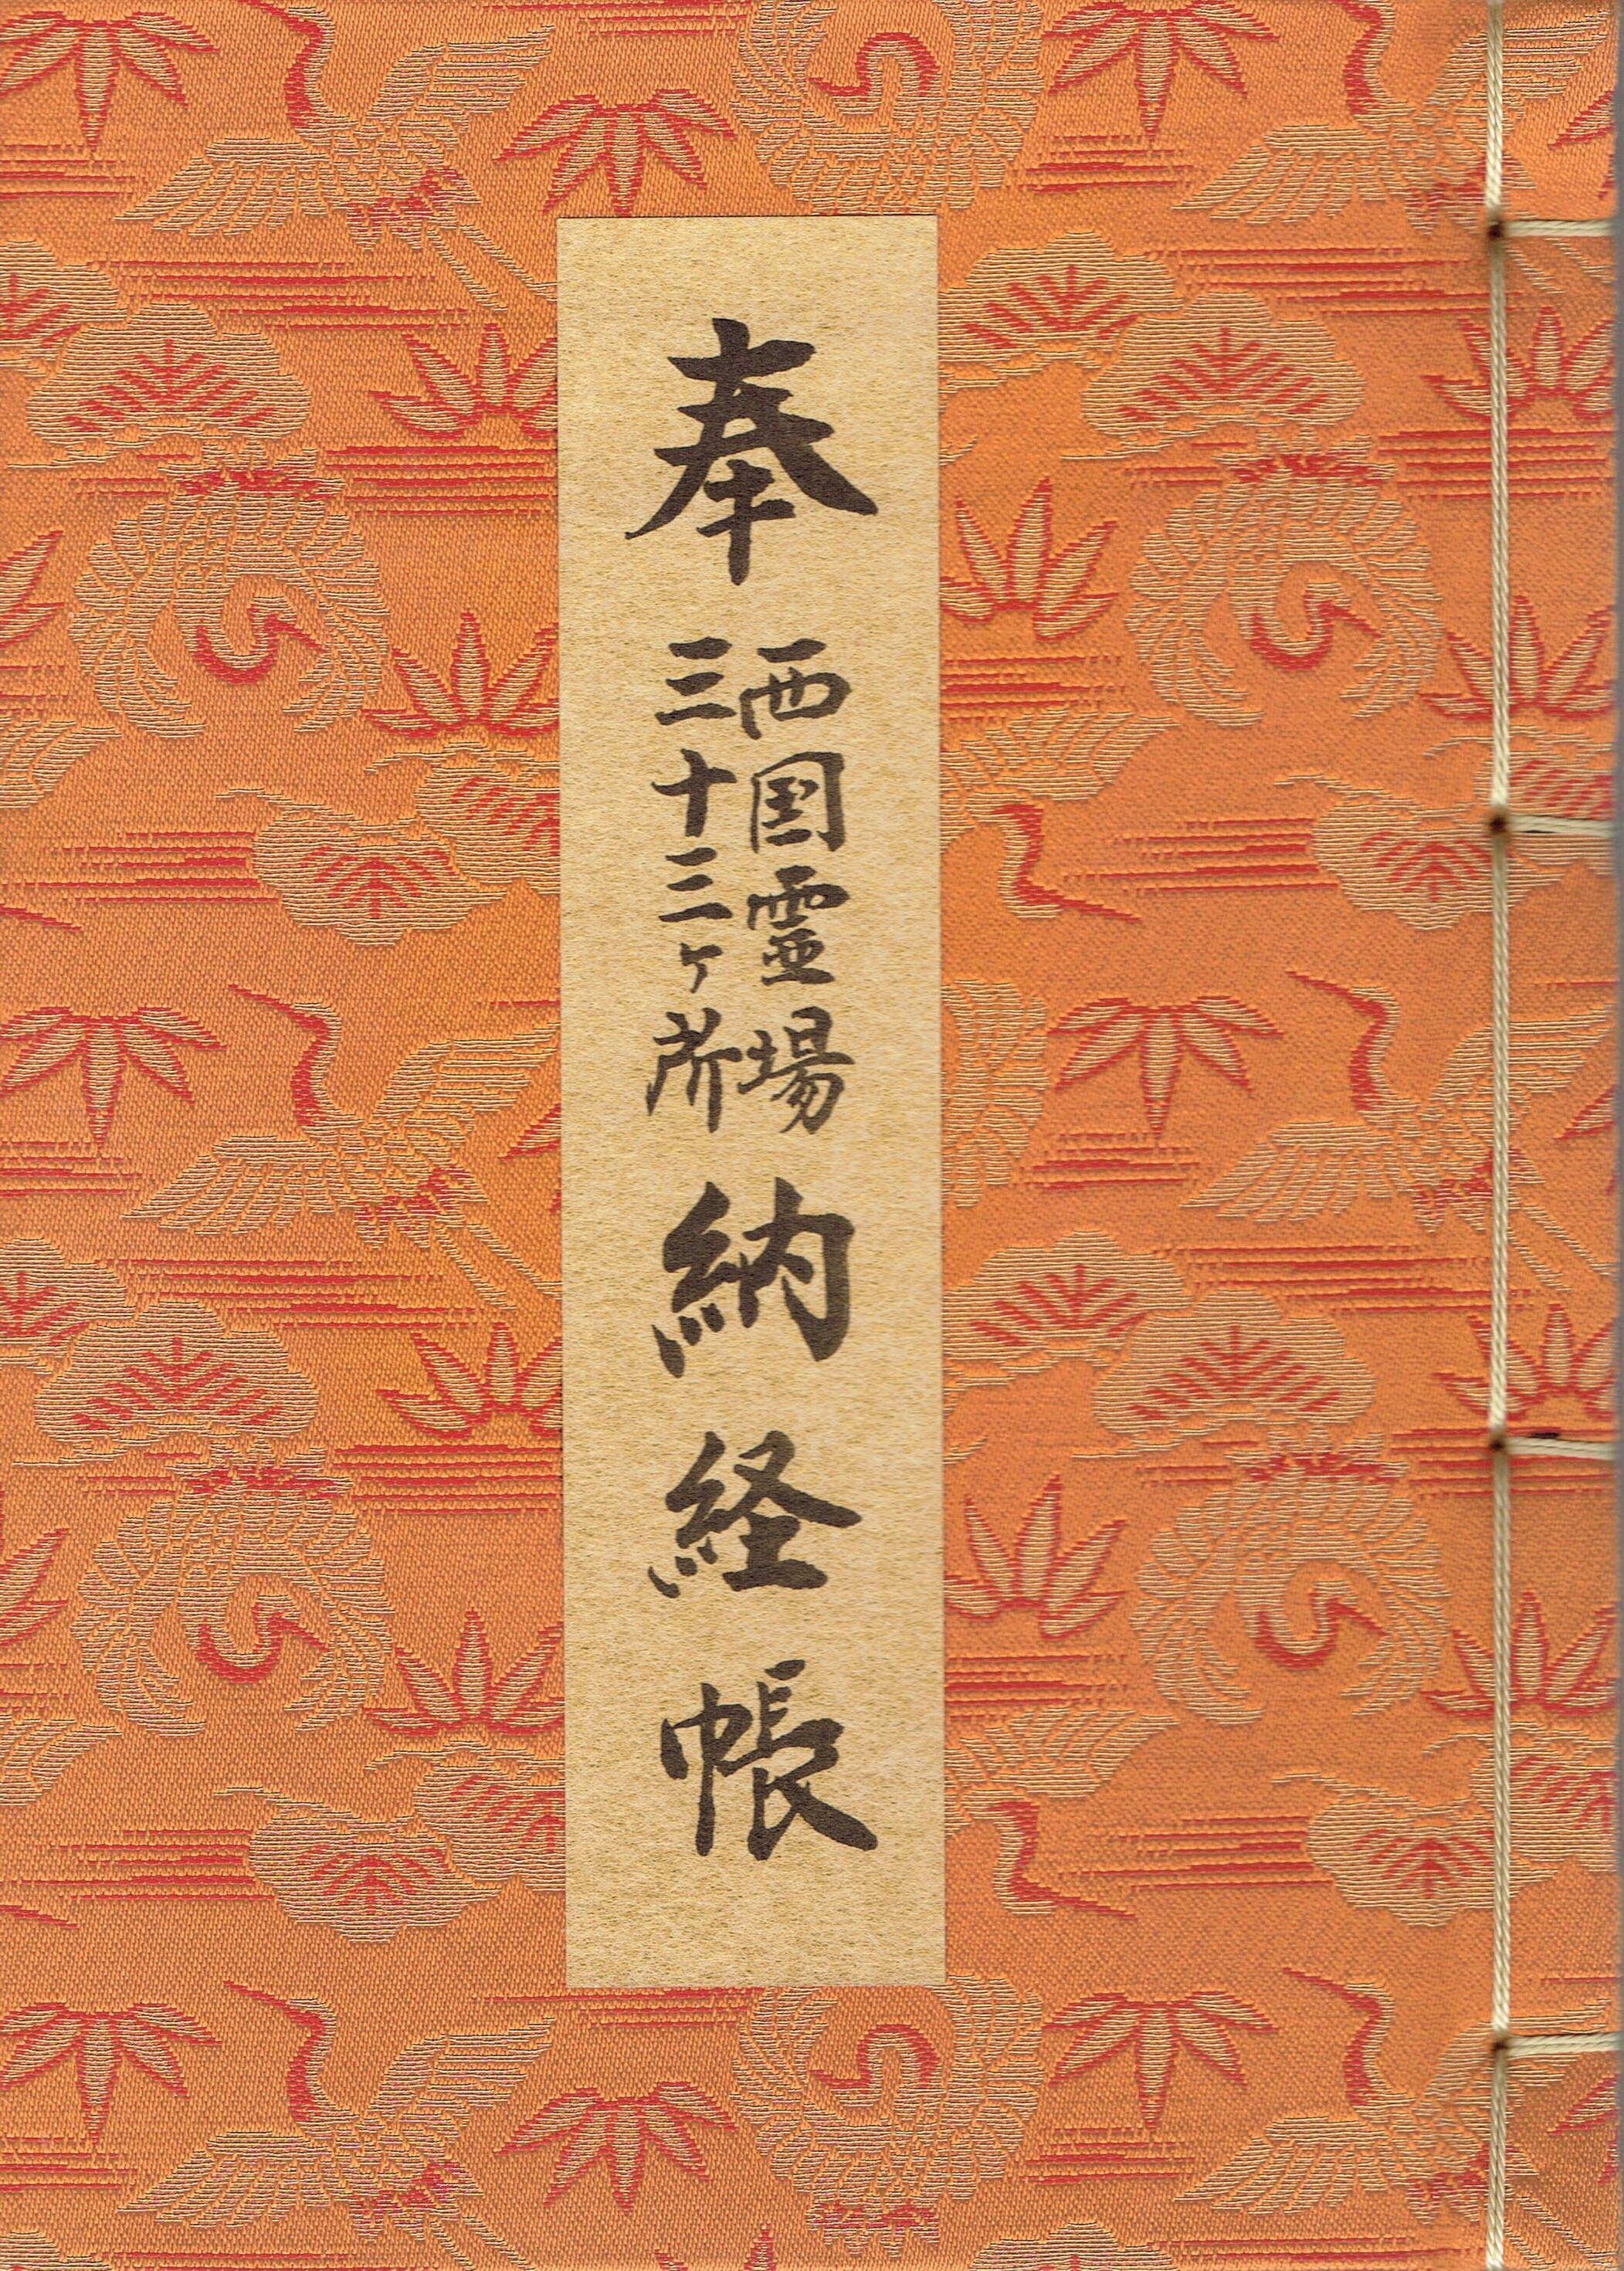 奉
西国霊場
三十三ヶ所
納経帳